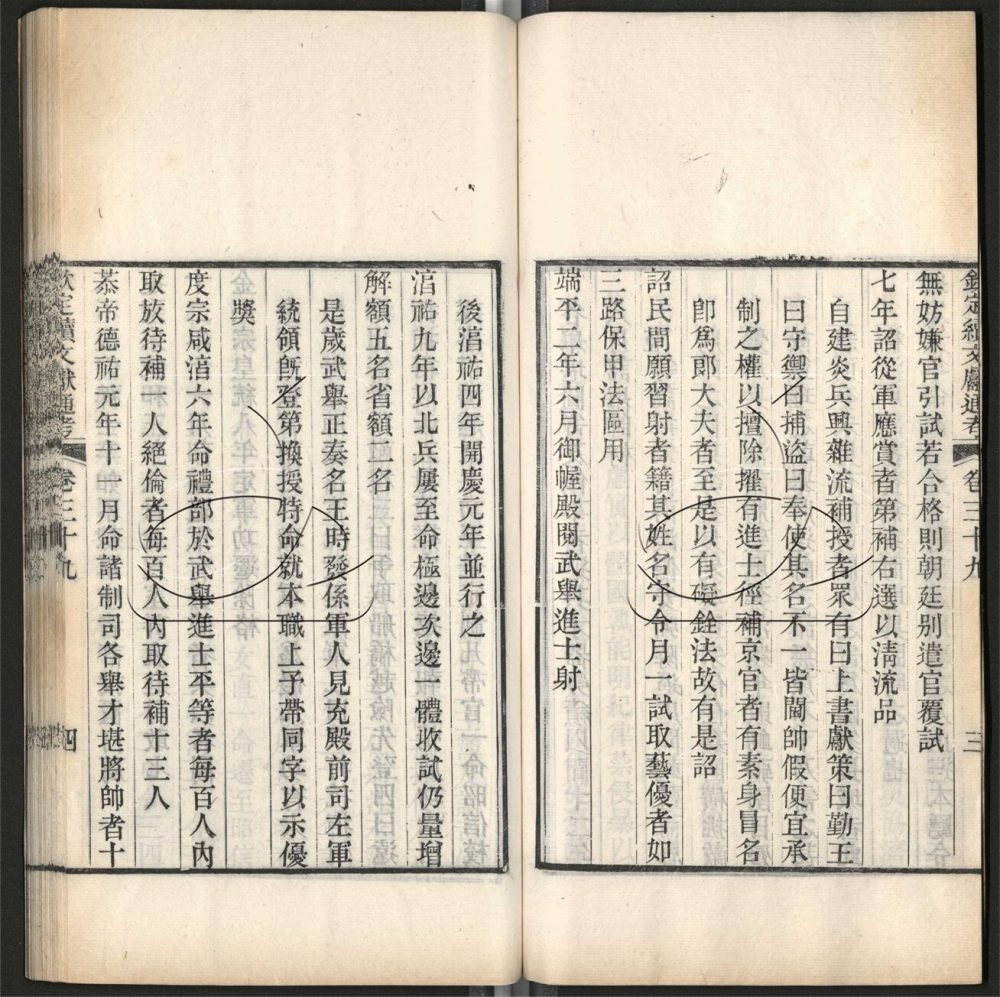 欽定續文獻通考 卷三十九 三
無妨嫌官引試若合格則朝廷别遣官覆試
七年詔從軍應賞者第補右選以淸流品
自建炎兵興雜流補授者眾有曰上書獻策曰勤王
曰守禦曰捕盜曰奉使其名不一皆閫帥假便宜承
制之權以擅除擢有進士徑補京官者有素身冒名
卽爲郎大夫者至是以有礙銓法故有是詔
詔民間願習射者籍其姓名守令月一試取藝優者如
三路保甲法區用
端平二年六月御幄殿閱武舉進士射
後淳祐四年開慶元年並行之
淳祐九年以北兵屢至命極邊次邊一體收試仍量增
解額五名省額二名
是歲武舉正奏名王時發係軍人見充殿前司左軍
統領旣登第換授特命就本職上予帶同字以示優
獎
度宗咸淳六年命禮部於武舉進士平等者每百人內
取放待補 人絕倫者每百人內取待補十三人
恭帝德祐元年十一月命諸制司各舉才堪將帥者十
欽定續文獻通考 卷三十九 四